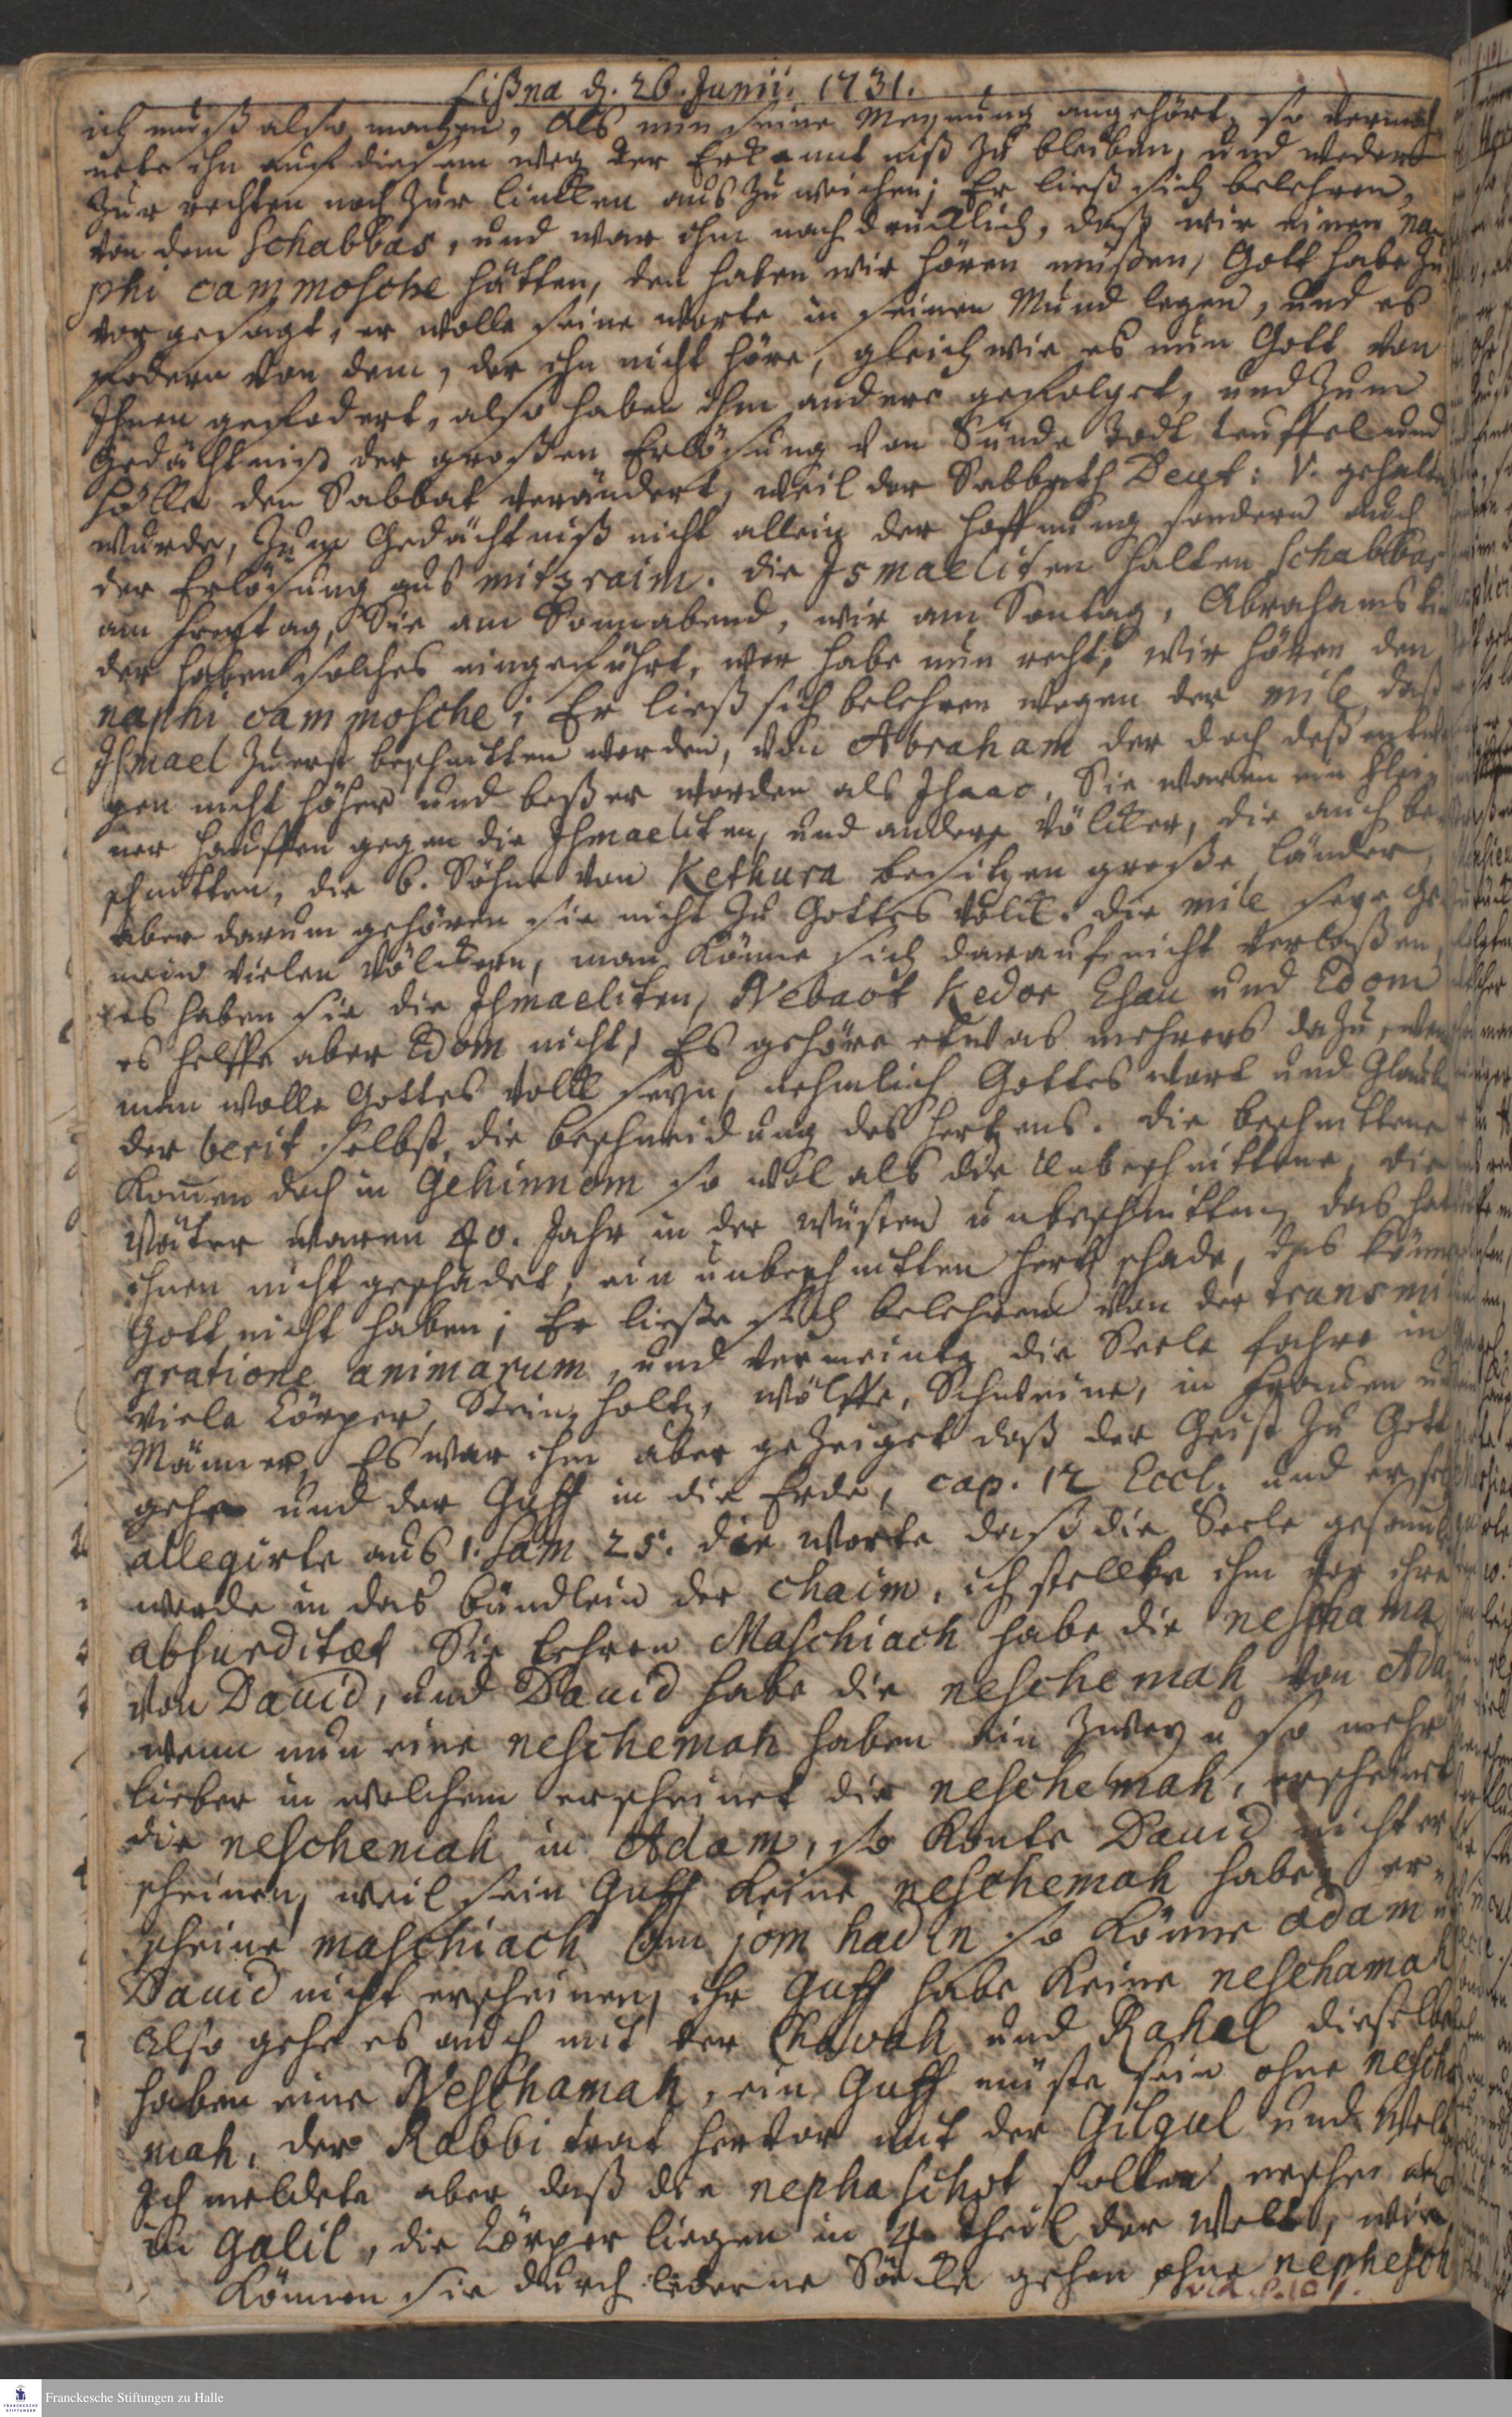 Lißna d. 26. Junii. 1731.
ich muß also machen, Als nun seine Meynung angehört, so vermah
nete ihn auf diesem weg der Erkanntniß zu bleiben, und weder
zur rechten noch zur lincken auszuweichen; Er ließ sich belehren,
von dem Schabbas, und war ihm nachdrücklich, daß wir einen na-
phi cammosche hätten, den haben wir hören müßen, Gott habe zu
vor gesagt, er wolle seine worte in seinen Mund legen, und es
fodern von dem, der ihn nicht höre, gleich wie es nun Gott von
Ihnen gefodert, also haben ihm andere gefolget, und zum
Gedächtniß der großen Erlösung von Sünde Todt teuffel und
hölle den Sabbat verändert, weil der Sabbath Deut: V. gehalten
wurde, zum Gedächtniß nicht allein der hoffnung sondern auch
der Erlösung aus mitzraim. die Ismaeliten halten Schabbas
am freytag, Sie am Sonnabend, wir am Sontag, Abrahams kin
der haben solches eingeführt, wer habe nun recht, wir hören den
naphi cammosche; Er ließ sich belehren wegen der mile, daß
Ismael zuerst beschnitten worden, von Abraham der doch deßentwe
gen nicht höher und beßer worden als Isaac, Sie waren ein klei-
ner hauffen gegen die Ismaeliten, und andere völker, die auch be-
schnitten, die 6. Söhne von Kethura besitzen große länder,
aber darum gehören sie nicht zu Gottes volck. die mile seye ge
mein vielen völckern, man könne sich darauf nicht verlaßen,
es haben sie die Ismaeliten, Nebaot Kedor Esau und Edom
es helffe aber Edom nicht, Es gehöre etwas mehrers dazu, wenn
man wolle Gottes volck seyn, nehmlich Gottes wort und Glaube
der berit selbst, die beschneidung des hertzens. die beschnittene
kommen doch in Gehinnom so wol als die Unbeschnittene, die
Väter waren 40. Jahr in der wüsten unbeschnitten, das hat
ihnen nicht geschadet, ein unbeschnitten hertz schade, das könne
Gott nicht haben; Er ließe sich belehren von der transmi
gratione animarum, und vermeinte die Seele fahre in
viele Cörper, Stein, holtz, wölffe, Schweine, in frauen und
Männer, Es war ihm aber gezeiget daß der Geist zu Gott
gehe und der Guff in die Erde, cap. 12 Eccl. und er
allegirte aus 1. Sam 25. die worte daß die Seele gesamlt
werde in das bündlein der chaim, ich stellte ihm vor ihre
absurditæt Sie lehren Maschiach habe die neschama
von David, und David habe die neschemah von Ada
wenn nun eine neschemah haben ein zwey u so mehr
lieber in welchem erscheinet die neschemah, erscheinet
die neschemah in Adam, so konte David nicht er
scheinen, weil sein Guff keine neschemah habe, er-
scheine maschiach am jom hadin so könne adam u
David nicht erscheinen, ihr Guff habe keine neschamah
Also gehe es auch mit der Chavah und Rahel dieselbe
haben eine Neschamah, ein Guff müste sein ohne nescha
mah, der Rabbi trat hervor mit der Gilgul und
Ich meldete aber daß die nephaschot sollen
in Galil, die Cörper liegen in 4. theil der Welt, wie
können sie durch gehen ohne nephesch
vid. p. 101.
Franckesche Stiftungen zu Halle